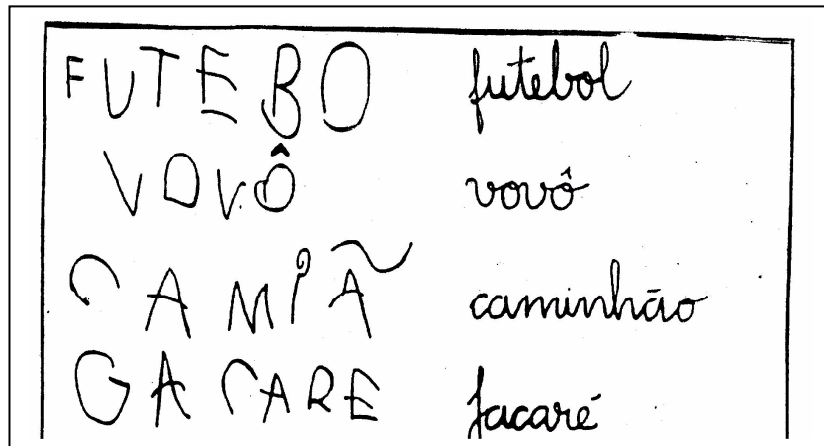 FUTEBO futebol
VOVÔ vovô
CAMIÃ caminhão
GACARE jacaré